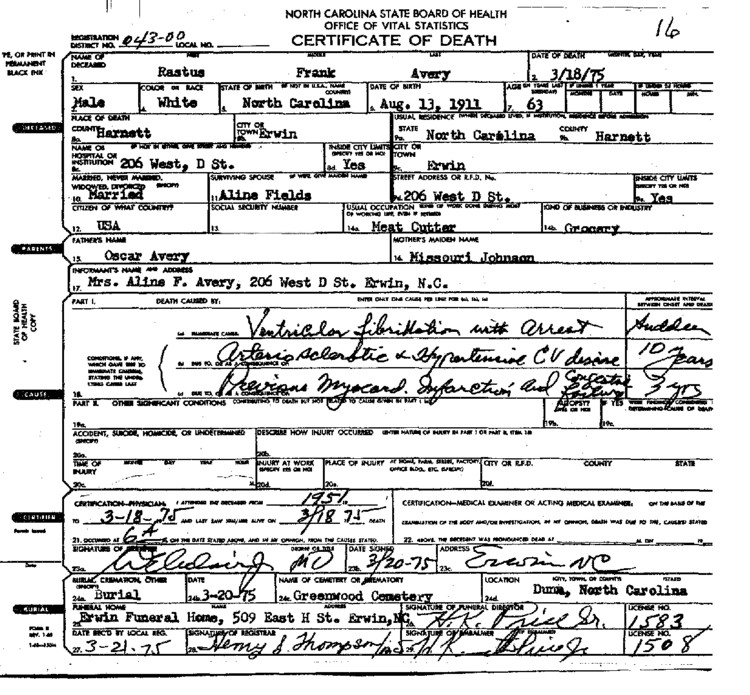 NORTH CAROLINA STATE BOARD OF HEALTH
OFFICE OF VITAL STATISTICS
CERTIFICATE OF DEATH
16
REGISTRATION DISTRICT NO. 043-00 LOCAL NO.
PE, OR PRINT IN PERMANENT BLACK INK
NAME OF DECEASED FIRST MIDDLE LAST DATE OF DEATH
1. Rastus Frank Avery 2. 3/18/75
SEX COLOR OR RACE STATE OF BIRTH (IF NOT IN U.S.A., NAME COUNTRY) DATE OF BIRTH AGE
Male 4. White 5. North Carolina 6. Aug. 13, 1911 7. 63
PLACE OF DEATH USUAL RESIDENCE
COUNTY Harnett CITY OR TOWN Erwin STATE North Carolina COUNTY Harnett
NAME OF HOSPITAL OR INSTITUTION 206 West, D St. INSIDE CITY LIMITS (SPECIFY YES OR NO) Yes CITY OR TOWN Erwin
MARRIED, NEVER MARRIED, WIDOWED, DIVORCED SURVIVING SPOUSE STREET ADDRESS OR R.F.D. No. INSIDE CITY LIMITS
10. Married 11. Aline Fields 206 West D St. Yes
CITIZEN OF WHAT COUNTRY? SOCIAL SECURITY NUMBER USUAL OCCUPATION KIND OF BUSINESS OR INDUSTRY
12. USA 13. 14a. Meat Cutter 14b. Grocery
PARENTS
FATHER'S NAME MOTHER'S MAIDEN NAME
15. Oscar Avery 16. Missouri Johnson
INFORMANT'S NAME AND ADDRESS
17. Mrs. Aline F. Avery, 206 West D St. Erwin, N.C.
STATE BOARD OF HEALTH COPY
PART I. DEATH CAUSED BY: ENTER ONLY ONE CAUSE PER LINE APPROXIMATE INTERVAL BETWEEN ONSET AND DEATH
IMMEDIATE CAUSE Ventricular fibrillation with Arrest Sudden
DUE TO, OR AS A CONSEQUENCE OF Arteriosclerotic & Hypertensive CV disease 10 years
DUE TO, OR AS A CONSEQUENCE OF Previous Myocard. Infarction and Congestive Failure 3 yrs
CAUSE
18.
PART II. OTHER SIGNIFICANT CONDITIONS AUTOPSY IF YES
19a. 19b. 19c.
ACCIDENT, SUICIDE, HOMICIDE, OR UNDETERMINED DESCRIBE HOW INJURY OCCURRED
20a. 20b.
TIME OF INJURY MONTH DAY YEAR HOUR INJURY AT WORK PLACE OF INJURY CITY OR R.F.D. COUNTY STATE
20c. 20d. 20e.
CERTIFIER
CERTIFICATION—PHYSICIAN: I ATTENDED THE DECEASED FROM 1951 CERTIFICATION—MEDICAL EXAMINER OR ACTING MEDICAL EXAMINER: ON THE BASIS OF THE
TO 3-18-75 AND LAST SAW HIM/HER ALIVE ON 3/18 75 DEATH EXAMINATION OF THE BODY AND/OR INVESTIGATION, IN MY OPINION, DEATH WAS DUE TO THE CAUSE(S) STATED
21. OCCURRED AT 6 A ON THE DATE STATED ABOVE, AND IN MY OPINION, FROM THE CAUSES STATED. 22. ABOVE. THE DECEDENT WAS PRONOUNCED DEAD AT
SIGNATURE OF CERTIFIER DATE SIGNED ADDRESS
23a. MD 23b. 3/20-75 23c. Erwin NC
BURIAL, CREMATION, OTHER DATE NAME OF CEMETERY OR CREMATORY LOCATION
24a. Burial 24b. 3-20-75 24c. Greenwood Cemetery 24d. Dunn, North Carolina
BURIAL
FUNERAL HOME NAME ADDRESS SIGNATURE OF FUNERAL DIRECTOR LICENSE NO.
25. Erwin Funeral Home, 509 East H St. Erwin, NC H.K. Price Sr. 1583
DATE REC'D BY LOCAL REG. SIGNATURE OF REGISTRAR SIGNATURE OF EMBALMER LICENSE NO.
27. 3-21-75 28. Henry S. Thompson 1508